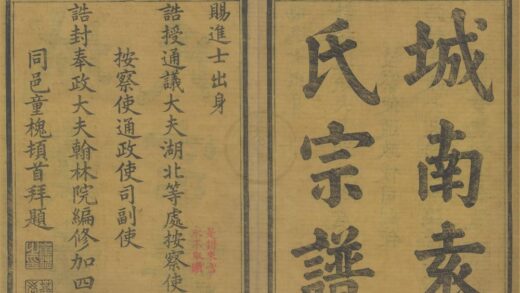 城南袁
氏宗譜
賜進士出身
誥授通議大夫湖北等處按察使
按察使通政使司副使
誥封奉政大夫翰林院編修加四
同邑童槐頓首拜題